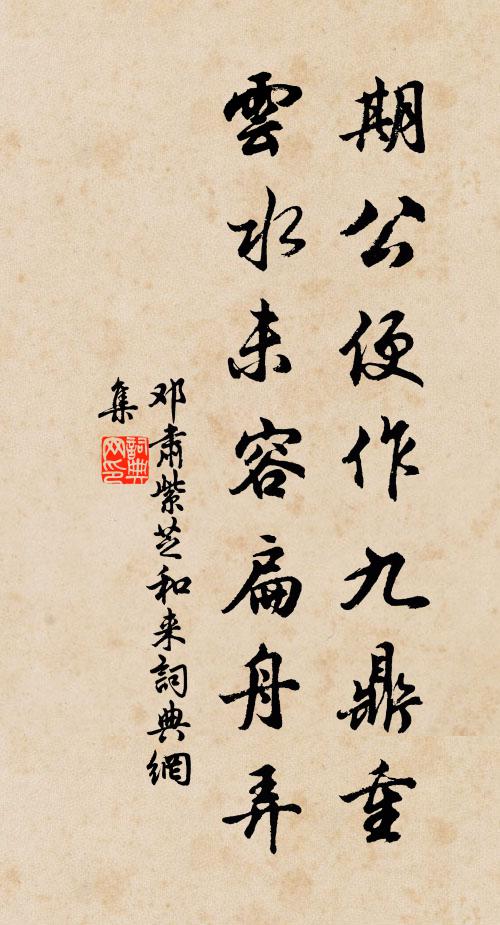 期公便作九鼎重
雲水未容扁舟弄
邓肅紫芝和来詞典網
集
詞典网印